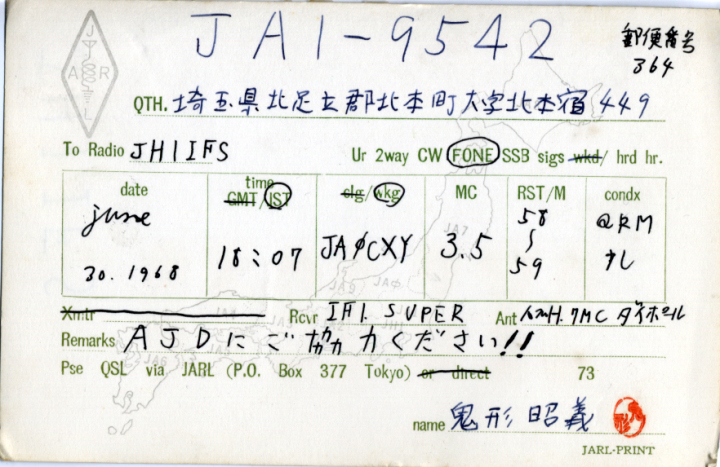 JA1-9542
郵便番号
364
J
A R
L
QTH. 埼玉県北足立郡北本町大字北本宿449
To Radio JH1IFS Ur 2way CW FONE SSB sigs wkd/ hrd hr.
date time GMT/JST clg/wkg MC RST/M condx
june 30. 1968 18:07 JAØCXY 3.5 58 ~ 59 QRM
Xmtr Rcvr IF1. SUPER Ant 7MC ダイポール
Remarks AJDにご協力ください!!
Pse QSL via JARL (P.O. Box 377 Tokyo) or direct 73
name 鬼形昭義
JARL-PRINT